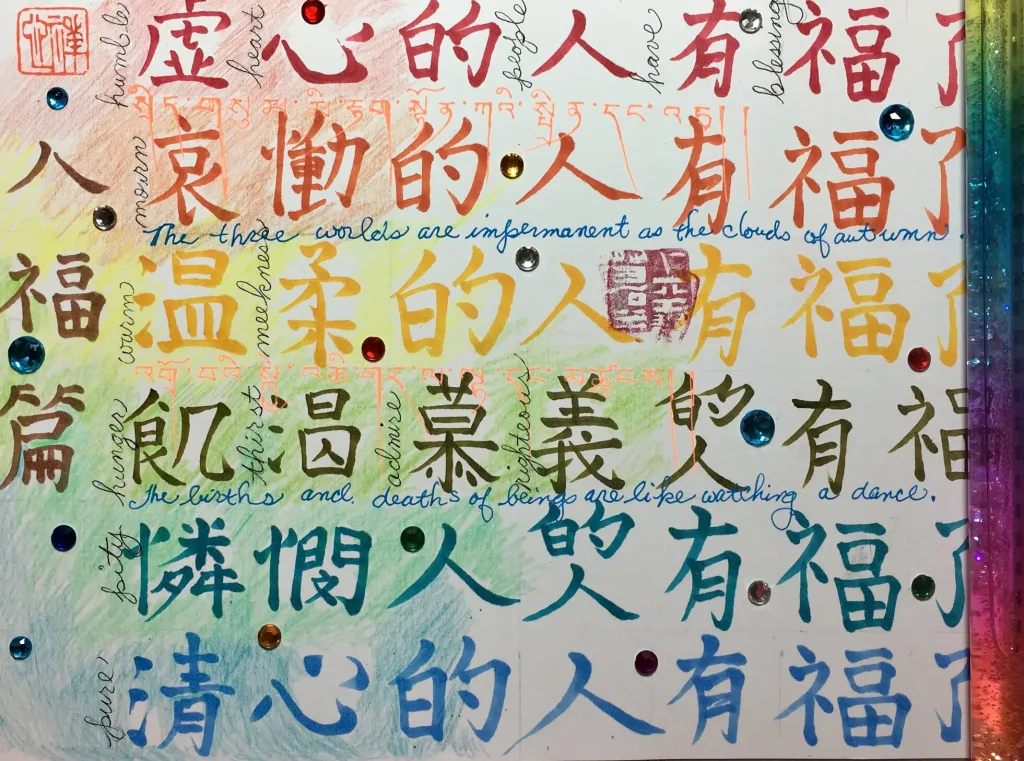 humble heart people have blessing
虚心的人有福了
སྲིད་གསུམ་མི་རྟག་སྟོན་ཀའི་སྤྲིན་དང་འདྲ།།
八福篇
mourn
哀慟的人有福了
The three worlds are impermanent as the clouds of autumn.
warm meekness
温柔的人有福了
འགྲོ་བའི་སྐྱེ་འཆི་གར་ལ་ལྟ་དང་མཚུངས།།
hunger thirst admire righteous
飢渴慕義的人有福
The births and deaths of beings are like watching a dance.
pity
憐憫人的人有福了
pure
清心的人有福了